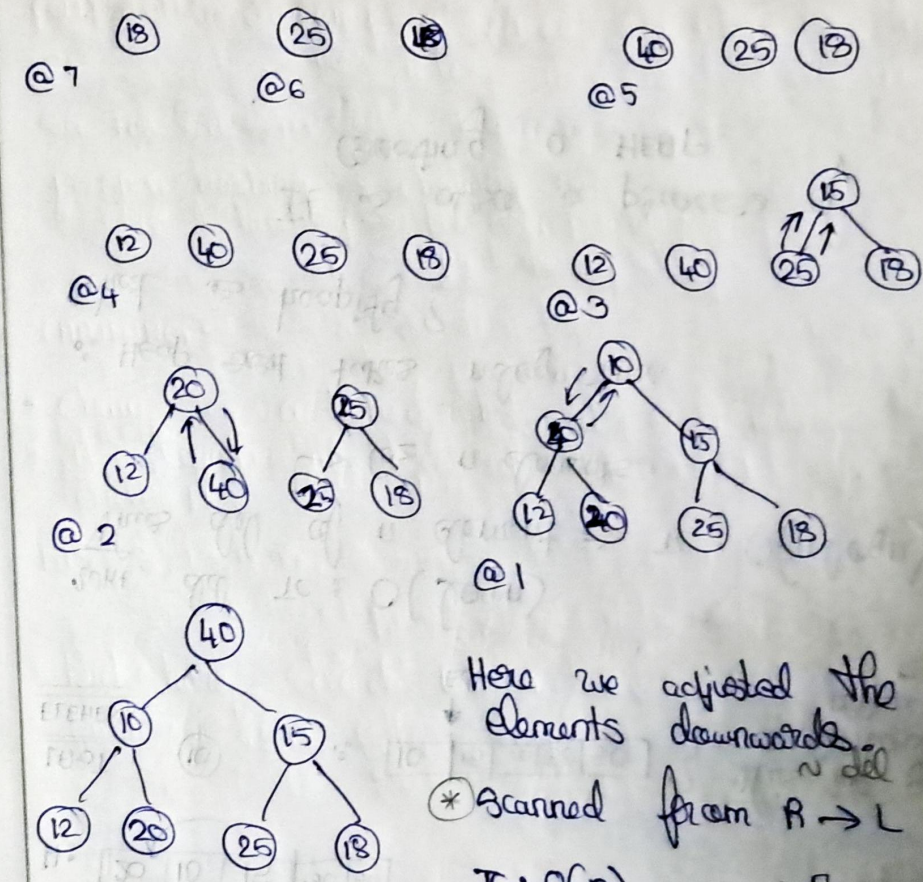 18 25 18
@7 @6
40 25 18
@5
12 40 25 18
@4
15
12 40 25 18
@3
20 25
12 40 18
@2
10
15
12 20 25 18
@1
40
10 15
12 20 25 18
Here we adjusted the
elements downwards.
~ del
* Scanned from R → L